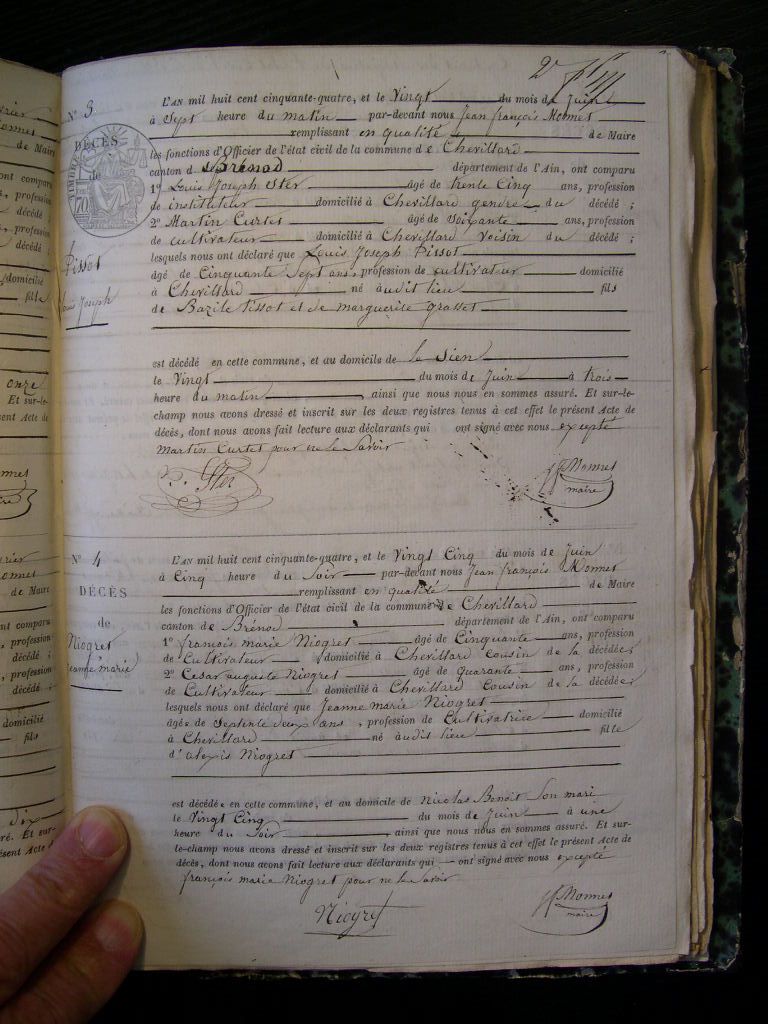 N° 3
DÉCÈS
de
Pissot
Louis Joseph
L'AN mil huit cent cinquante-quatre, et le Vingt du mois de Juin
à Sept heure du matin par-devant nous Jean françois Monnet
remplissant en qualité de Maire
les fonctions d'Officier de l'état civil de la commune de Chevillard
canton de Brénod département de l'Ain, ont comparu
1° Louis Joseph Ster âgé de trente Cinq ans, profession
de instituteur domicilié à Chevillard gendre du décédé ;
2° Martin Curtet âgé de Soixante ans, profession
de cultivateur domicilié à Chevillard Voisin du décédé ;
lesquels nous ont déclaré que Louis Joseph Pissot
âgé de Cinquante Sept ans, profession de cultivateur domicilié
à Chevillard né audit lieu fils
de Bazile Pissot et de marguerite grasset
est décédé en cette commune, et au domicile de le Sien
le Vingt du mois de Juin à trois
heure du matin , ainsi que nous nous en sommes assuré. Et sur-le-
champ nous avons dressé et inscrit sur les deux registres tenus à cet effet le présent Acte de
décès, dont nous avons fait lecture aux déclarants qui ont signé avec nous excepté
Martin Curtet pour ne le Savoir
Ster
Monnet
maire
N° 4
DÉCÈS
de
Niogret
Jeanne marie
L'AN mil huit cent cinquante-quatre, et le Vingt Cinq du mois de Juin
à Cinq heure du Soir par-devant nous Jean françois Monnet
remplissant en qualité de Maire
les fonctions d'Officier de l'état civil de la commune de Chevillard
canton de Brénod département de l'Ain, ont comparu
1° françois marie Niogret âgé de Cinquante ans, profession
de Cultivateur domicilié à Chevillard Cousin de la décédée ;
2° Cesar auguste Niogret âgé de quarante ans, profession
de Cultivateur domicilié à Chevillard Cousin de la décédée ;
lesquels nous ont déclaré que Jeanne marie Niogret
âgée de Septente deux ans , profession de Cultivatrice domicilié
à Chevillard né audit lieu fille
d'alexis Niogret
est décédée en cette commune, et au domicile de Nicolas Benoit Son mari
le Vingt Cinq du mois de Juin à une
heure du Soir , ainsi que nous nous en sommes assuré. Et sur-
le-champ nous avons dressé et inscrit sur les deux registres tenus à cet effet le présent Acte de
décès, dont nous avons fait lecture aux déclarants qui ont signé avec nous excepté
françois marie Niogret pour ne le Savoir
Niogret
Monnet
maire